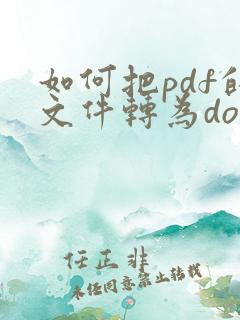 如何把pdf的
文件轉為do
任正非
未经同意禁止转载